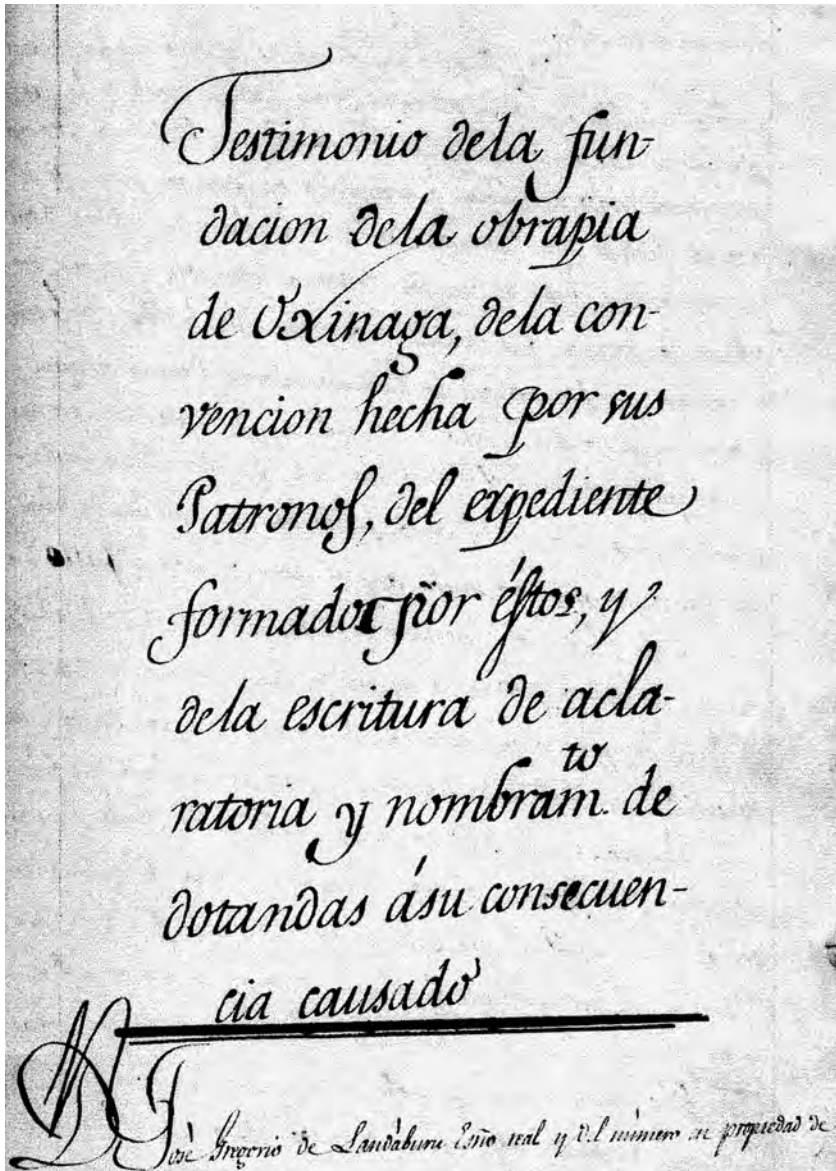 Testimonio dela fun-
dacion dela obrapia
de Uxinaga, dela con-
vencion hecha por sus
Patronos, del expediente
formado por éstos, y
dela escritura de acla-
ratoria y nombram.to de
dotandas ásu consecuen-
cia causado
José Gregorio de Landaburu Esño real y del número en propiedad de